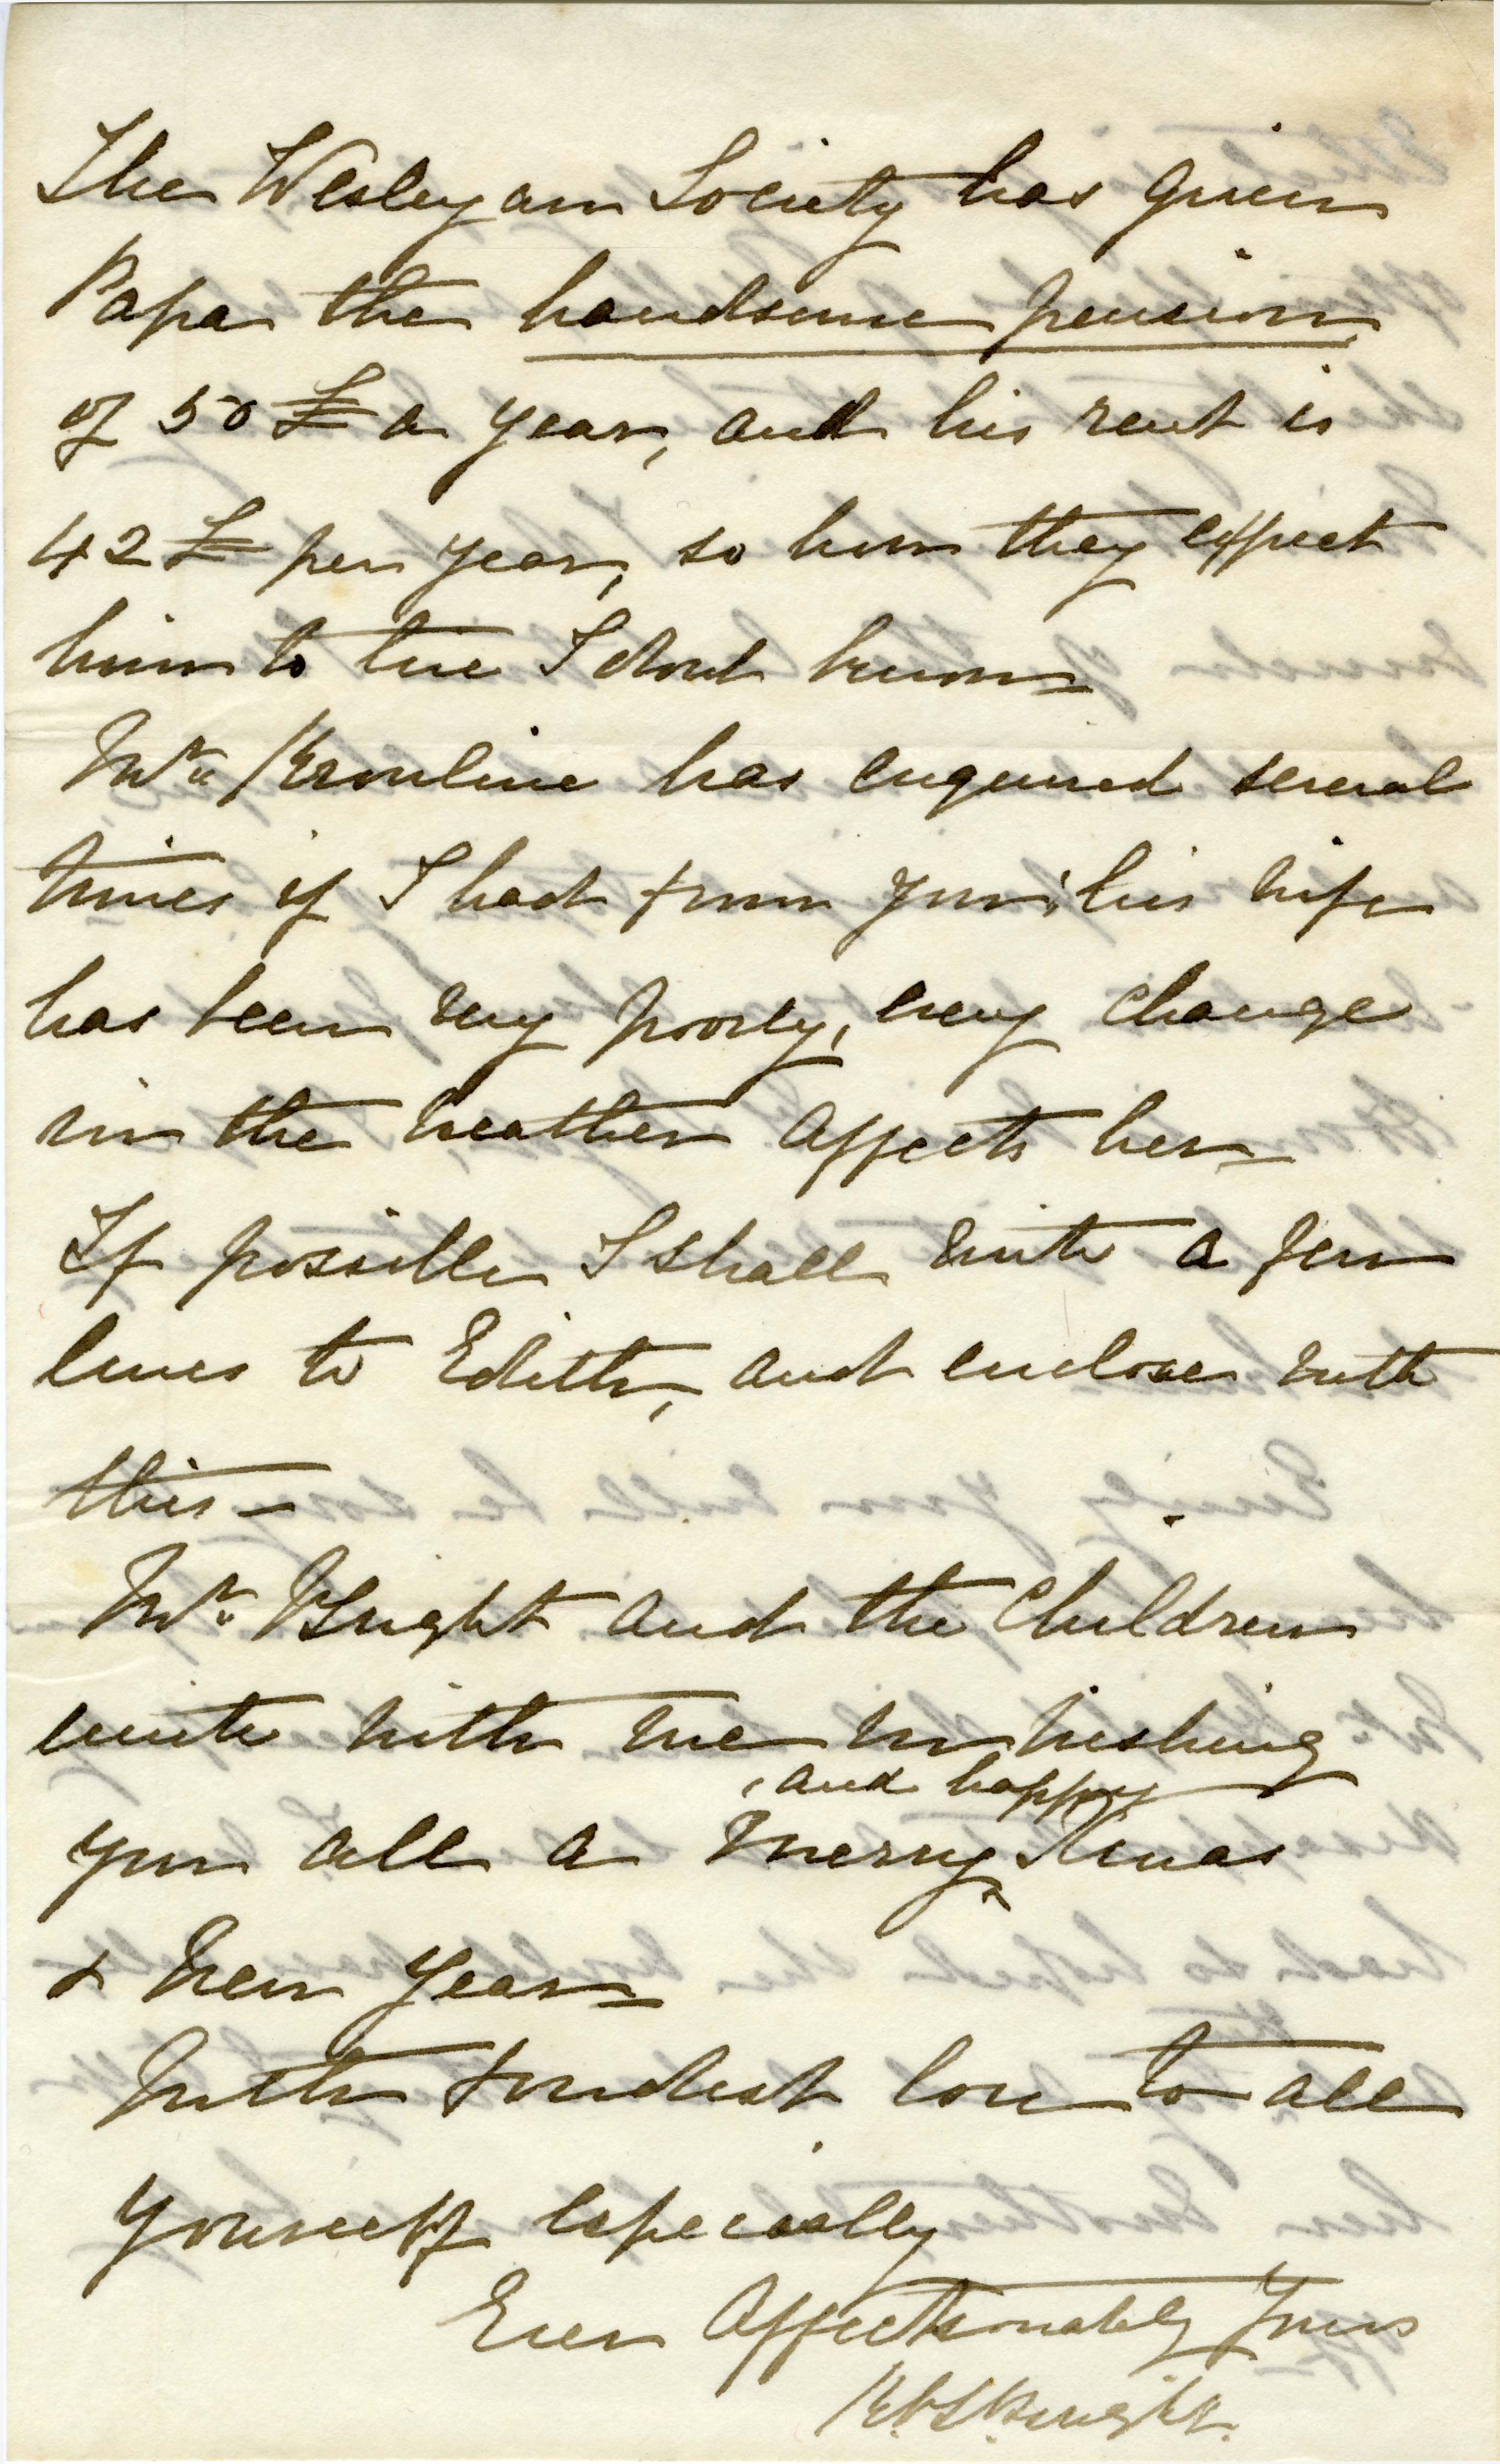 The Wesleyan Society has given
Papa the handsome pension
of 50 £ a year, and his rent is
42 £ per year, so how they expect
him to live I dont know
Mr has enquired several
times if I had from you, his wife
has been very poorly, every change
in the weather affects her
If possible I shall write a few
lines to Edith, and enclose with
this —
Mr. Knight and the Children
unite with me in wishing
and happy
you all a Merry Xmas
& New Year
With fondest love to all
Yourself especially
Ever Affectionately Yours
Knight.